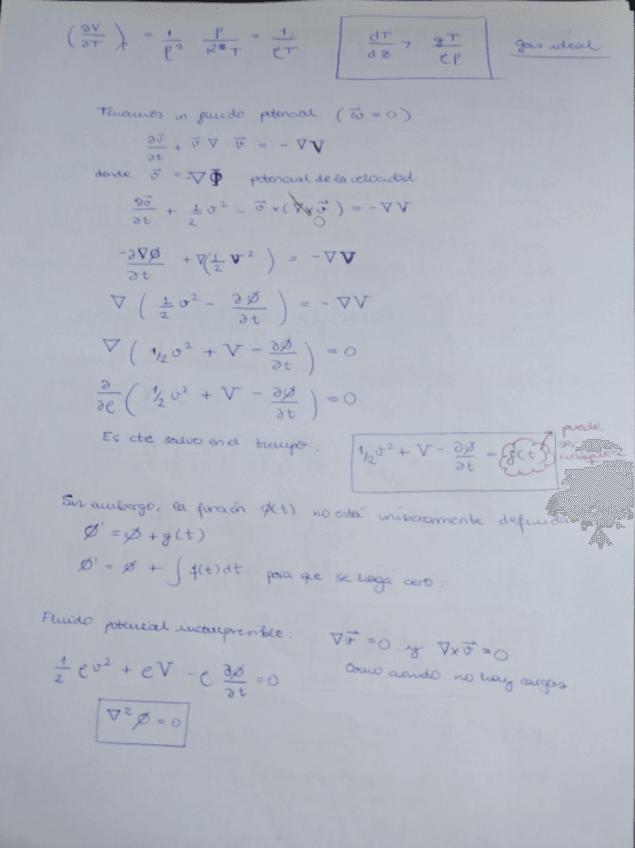 (∂V/∂T)p = 1/ρ² p/R*T = 1/ρT    dT/dz > gT/cp    gas ideal
Tenemos un fluido potencial (ω⃗ = 0)
∂v⃗/∂t + v⃗ ∇ v⃗ = - ∇V
donde v⃗ = -∇Φ potencial de la velocidad
∂v⃗/∂t + 1/2 v² - v⃗ × (∇×v⃗) = -∇V
0
-∂∇Ø/∂t + ∇(1/2 v²) = -∇V
∇ (1/2 v² - ∂Ø/∂t) = -∇V
∇ (1/2 v² + V - ∂Ø/∂t) = 0
∂/∂ℓ (1/2 v² + V - ∂Ø/∂t) = 0
Es cte salvo en el tiempo. 1/2 v² + V - ∂Ø/∂t = f(t) puede ser
Sin embargo, la función Ø(t) no está unívocamente definida
Ø' = Ø + g(t)
Ø' = Ø + ∫ f(t) dt. para que se haga cero.
Fluido potencial incompresible. ∇v⃗ = 0 y ∇×v⃗ = 0
1/2 ρv² + ρV - ρ ∂Ø/∂t = 0    Como cuando no hay cargas.
∇²Ø = 0